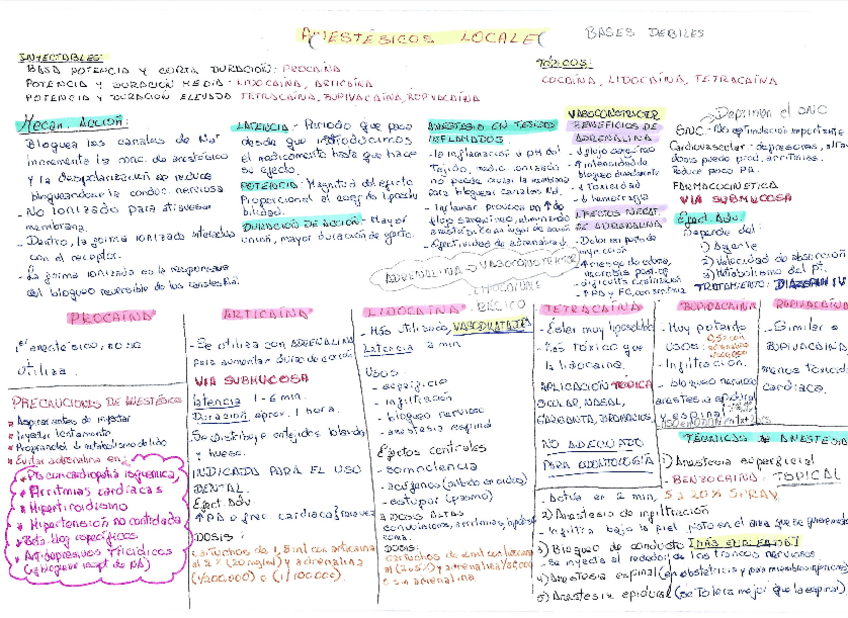 ANESTÉSICOS LOCALES
BASES DEBILES
INYECTABLES:
BAJA POTENCIA Y CORTA DURACIÓN: PROCAÍNA
POTENCIA Y DURACIÓN MEDIA: LIDOCAÍNA, ARTICAÍNA
POTENCIA Y DURACIÓN ELEVADA TETRACAÍNA, BUPIVACAÍNA, ROPIVACAÍNA
TÓPICOS:
COCAÍNA, LIDOCAÍNA, TETRACAÍNA
Mecan. Acción:
Bloquea los canales de Na+
incrementa la conc. de anestésico
y la despolarización se reduce
bloqueandose la conduc. nerviosa
- No ionizado para atravesar
membrana.
- Dentro, la forma ionizada interactua
con el receptor.
- La forma ionizada es la responsable
del bloqueo reversible de los canales Na.
LATENCIA:- Periodo que pasa
desde que introducimos
el medicamento hasta que hace
su efecto.
POTENCIA: Magnitud del efecto
Proporcional al
DURACIÓN DE ACCIÓN- Mayor
unión, mayor duración de efecto.
ANESTESICO EN TEJIDOS
INFLAMADOS.
- la inflamación ↓ pH del
Tejido,
no puede cruzar la membrana
para bloquear canales Na.
- Inflamar provoca un ↑ de
flujo sanguíneo, eliminando
- Efectividad de adrenalina ↓.
ADRENALINA → VASOCONSTRICTOR
VASOCONSTRICTOR
BENEFICIOS DE
ADRENALINA
- ↓ flujo sanguíneo
- ↑ intensidad de
bloqueo
- ↓ Toxicidad
- ↓ hemorragia
EFECTOS NEGAT.
DE ADRENALINA
- Dolor en punto de
inyección
- ↑ riesgo de edema,
necrosis post-op
Deprimen el SNC
SNC.- No estimulación importante
Cardiovascular- depresores, altas
dosis puede prod. arritmias.
Reduce poco PA.
FARMACOCINETICA
VIA SUBMUCOSA
Efect. Adv.
Depende del:
1) Agente
2) Velocidad de absorción
3) Metabolismo del pt.
TRATAMIENTO: DIAZEPAM IV
PROCAÍNA
1º anestésico, no se
utiliza.
PRECAUCIONES DE ANESTÉSICO
* Aspirar antes de inyectar
* Inyectar lentamente
* Evitar adrenalina en:
* Pts con cardiopatía isquemica,
* Arritmias cardiacas
* Hipertiroidismo
* Hipertensión no controlada
* Beta bloq específicos
* Antidepresivos Tricíclicos
ARTICAÍNA
- Se utiliza con ADRENALINA
para aumentar durac de acción
VIA SUBMUCOSA
latencia 1-6 min.
Duración, aprox. 1 hora.
Se distribuye en tejidos blandos
y hueso.
INDICADO PARA EL USO
DENTAL.
Efect. Adv.
DOSIS:
cartuchos de 1,8 ml con articaina
al 2% (20 mg/ml) y adrenalina
(1/200.000) o (1/100.000).
LIDOCAÍNA - BÁSICO
- Más utilizado, VASODILATA
Latencia 2 min
USOS:
- superficie
- infiltración
- bloqueo nervioso
- anestesia espinal
Efectos centrales
- somnolencia
- acúfenos (silbido en oídos)
- estupor (pasmo)
A DOSIS ALTAS
convulsiones, arritmias,
coma.
DOSIS:
o sin adrenalina.
TETRACAÍNA
- Éster muy liposoluble
- Más tóxico que
la lidocaína.
APLICACIÓN TOPICA
OCULAR, NASAL,
GARGANTA, BRONQUIOS.
NO ADECUADO
PARA ODONTOLOGÍA
BUPIVACAÍNA
- Muy potente
USOS:
- Infiltración.
- bloqueo nervioso
anestesia epidural
y espinal
ROPIVACAÍNA
- Similar a
BUPIVACAÍNA,
menos toxicidad
cardiaca.
TÉCNICAS DE ANESTESIA
1) Anestesia superficial
- BENZOCAINA: TOPICAL
- Actúa en 2 min, 5 a 20% SPRAY
2) Anestesia de infiltración
- Infiltra bajo la piel justo en el area que se quiere
3) Bloqueo de conducto [MÁS EMPLEADA]
- Se inyecta al rededor de los troncos nerviosos.
4) Anestesia espinal (en obstetricia y para miembros inferiores)
5) Anestesia epidural (se Tolera mejor que la espinal)